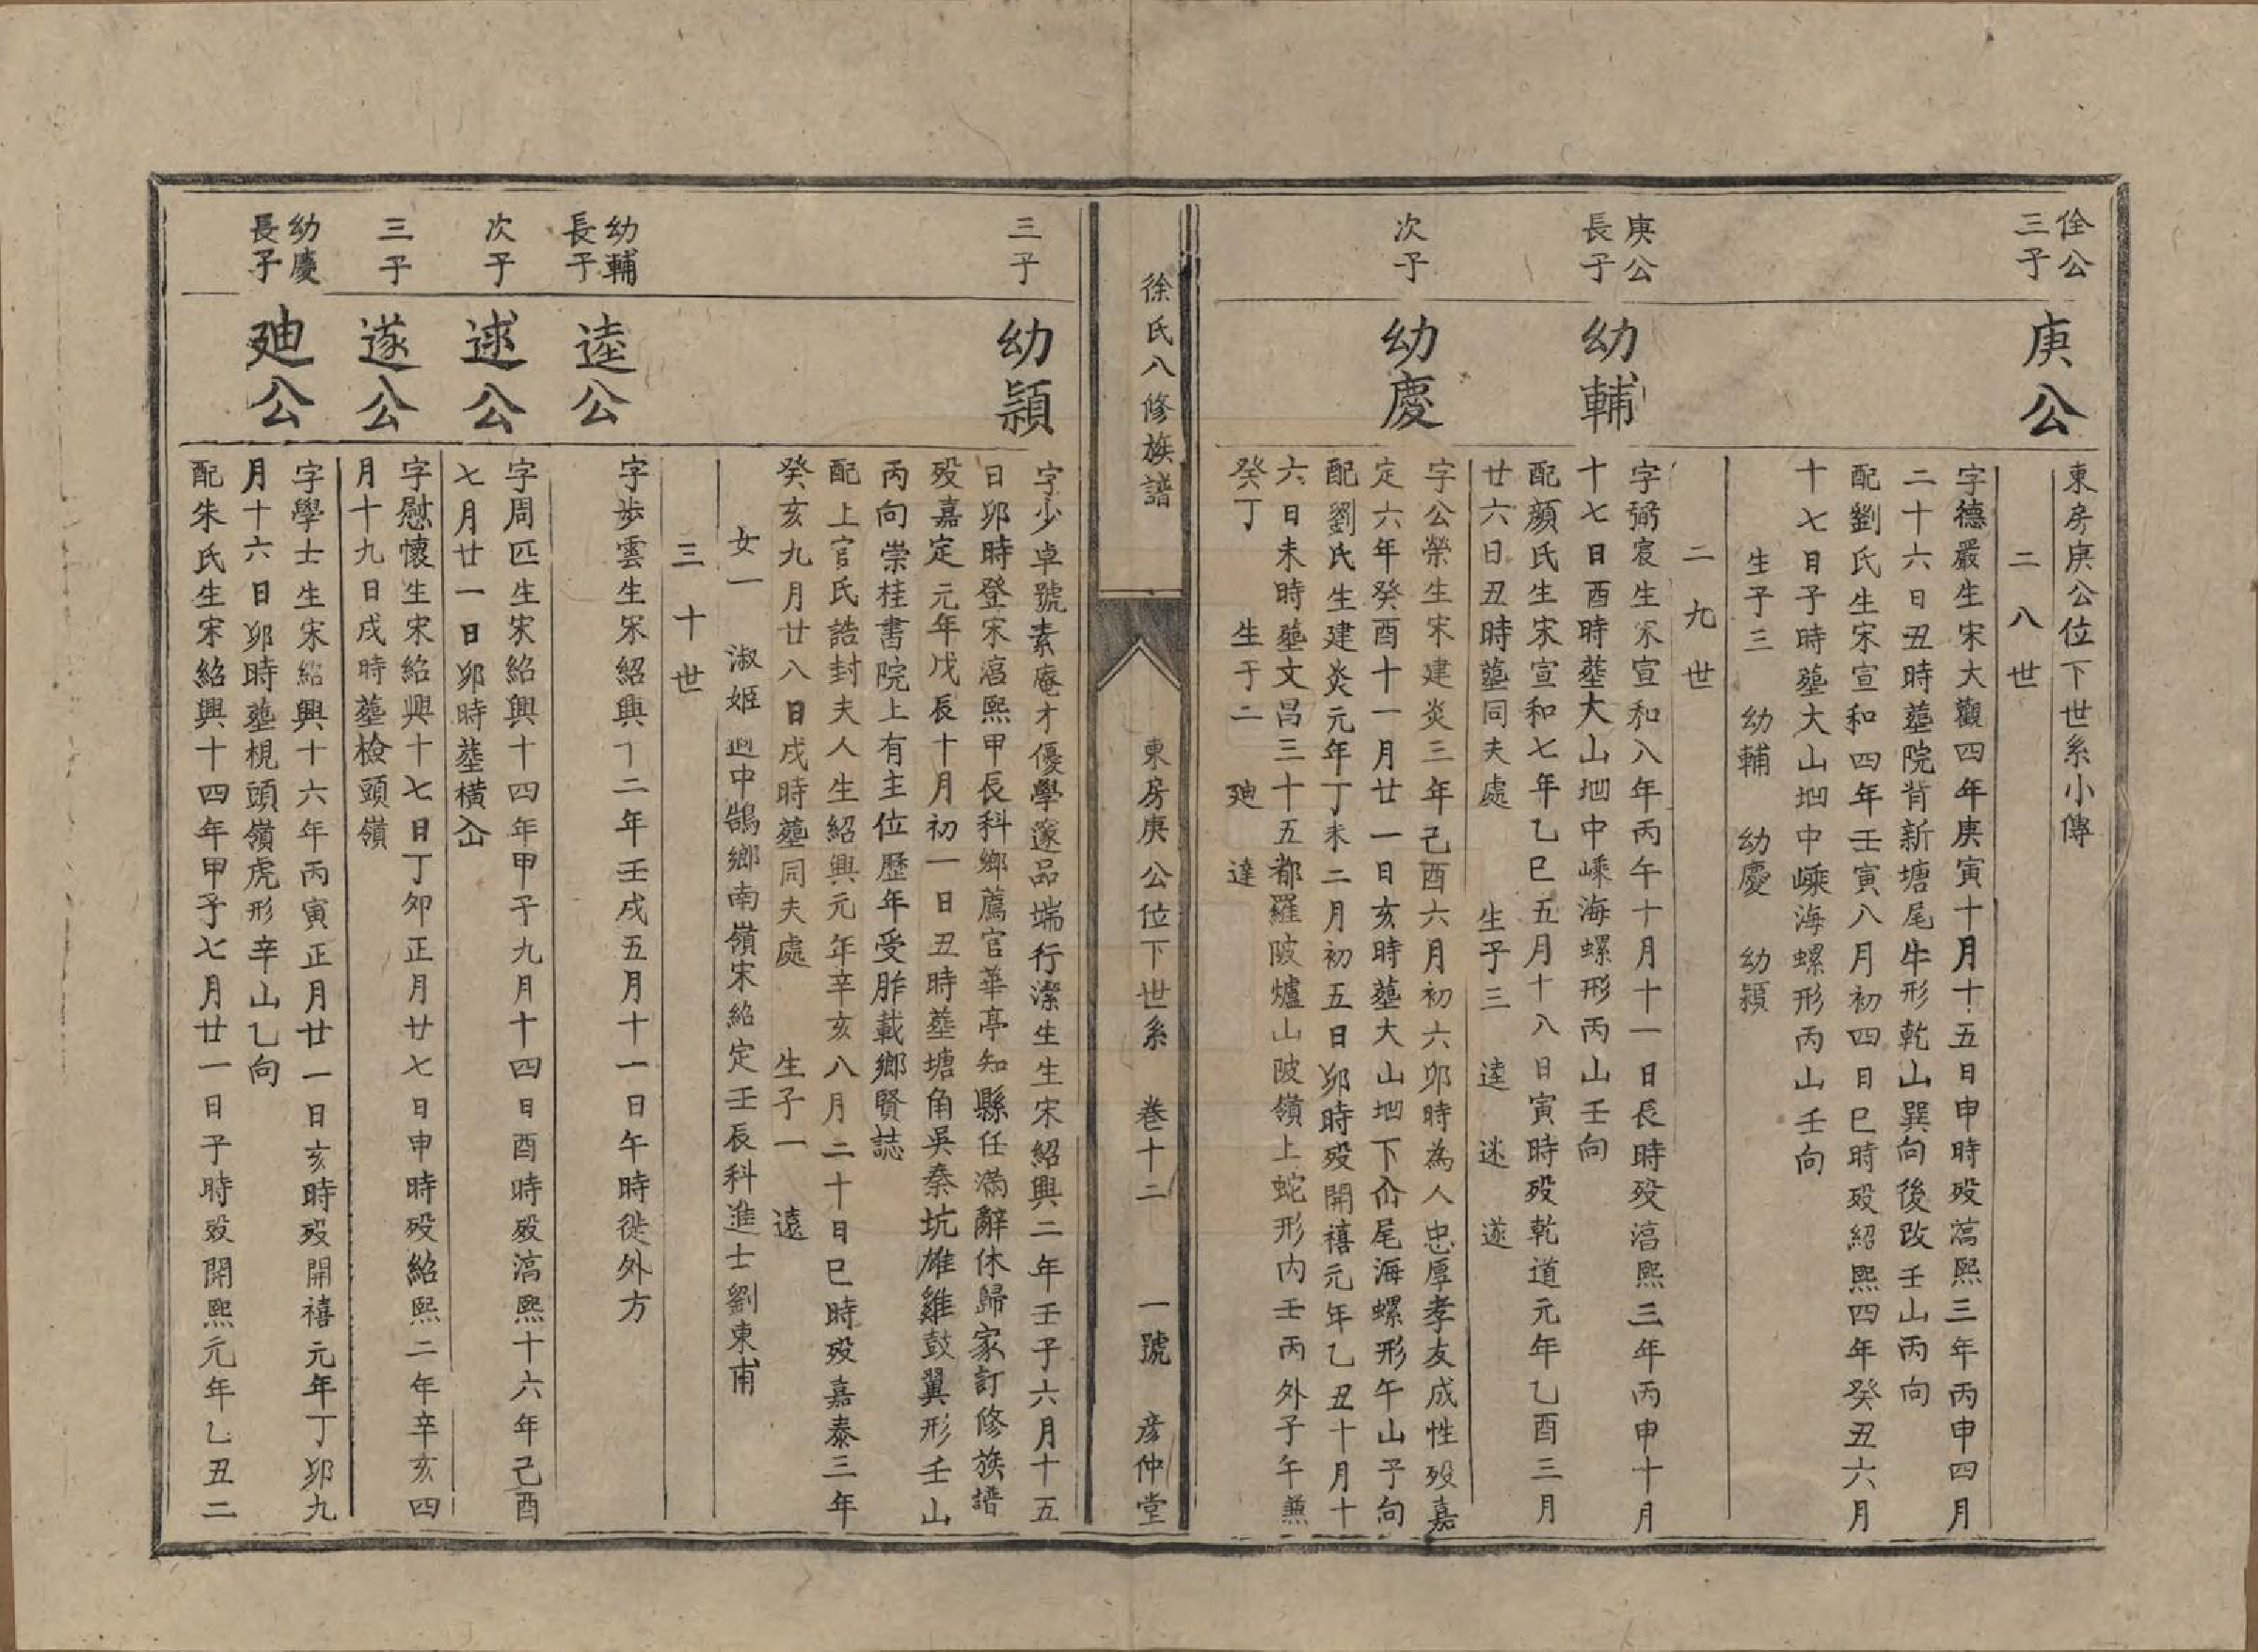 東房庚公位下世系小傳
二八世
佺公
三子
庚公
字德嚴生宋大觀四年庚寅十月十五日申時殁湻熙三年丙申四月
二十六日丑時塟院背新塘尾牛形乾山巽向後改壬山丙向
配劉氏生宋宣和四年壬寅八月初四日巳時殁紹熙四年癸丑六月
十七日子時塟大山坳中嵊海螺形丙山壬向
生子三 幼輔 幼慶 幼穎
二九世
庚公
長子
幼輔
字弼宸生宋宣和八年丙午十月十一日長時殁湻熙三年丙申十月
十七日酉時塟大山坳中嵊海螺形丙山壬向
配顏氏生宋宣和七年乙巳五月十八日寅時殁乾道元年乙酉三月
廿六日丑時塟同夫處 生子三 逵 逑 遂
次子
幼慶
字公榮生宋建炎三年己酉六月初六卯時為人忠厚孝友成性殁嘉
定六年癸酉十一月廿一日亥時塟大山坳下仚尾海螺形午山子向
配劉氏生建炎元年丁未二月初五日卯時殁開禧元年乙丑十月十
六日未時塟文昌三十五都羅陂爐山陂嶺上蛇形內壬丙外子午兼
癸丁 生子二 廸 達
徐氏八修族譜
東房庚公位下世系 卷十二 一號 彦仲堂
三子
幼穎
字少卓號素庵才優學邃品端行潔生生宋紹興二年壬子六月十五
日卯時登宋湻熙甲長科鄉薦官華亭知縣任滿辭休歸家訂修族譜
殁嘉定元年戊辰十月初一日丑時塟塘角吳秦坑雄雞鼓翼形壬山
丙向崇桂書院上有主位歷年受胙載鄉賢誌
配上官氏誥封夫人生紹興元年辛亥八月二十日巳時殁嘉泰三年
癸亥九月廿八日戌時塟同夫處 生子一 遠
女一 淑姬 適中鵠鄉南嶺宋紹定壬辰科進士劉東甫
三十世
幼輔
長子
逵公
字步雲生宋紹興十二年壬戌五月十一日午時徙外方
次子
逑公
字周匹生宋紹興十四年甲子九月十四日酉時殁湻熙十六年己酉
七月廿一日卯時塟橫仚
三子
遂公
字慰懷生宋紹興十七日丁卯正月廿七日申時殁紹熙二年辛亥四
月十九日戌時塟檢頭嶺
幼慶
長子
廸公
字學士生宋紹興十六年丙寅正月廿一日亥時殁開禧元年丁卯九
月十六日卯時塟梘頭嶺虎形辛山乙向
配朱氏生宋紹興十四年甲子七月廿一日子時殁開熙元年乙丑二